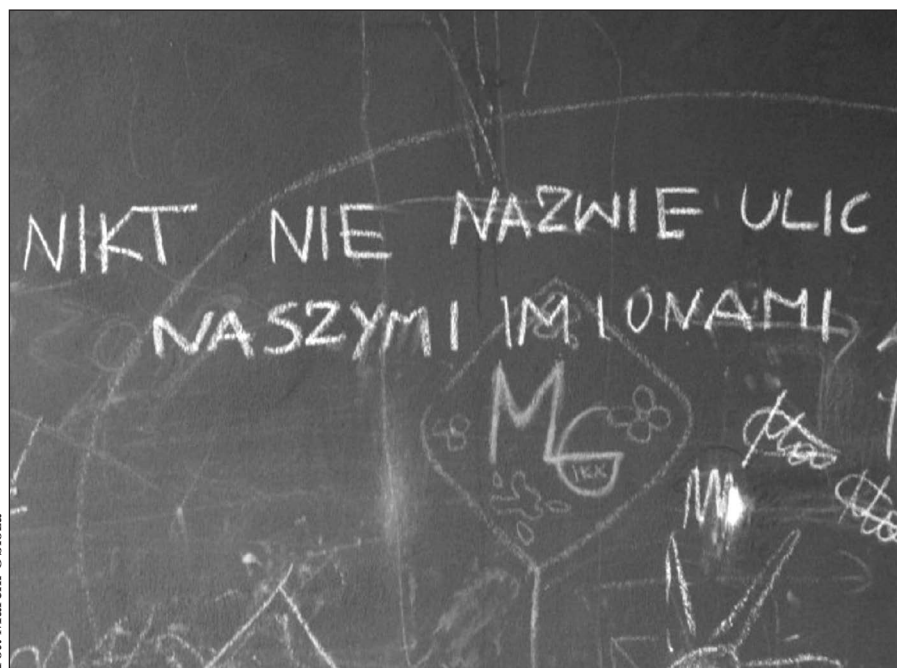 NIKT NIE NAZWIE ULIC
NASZYMI IMIONAMI
MG
IKK